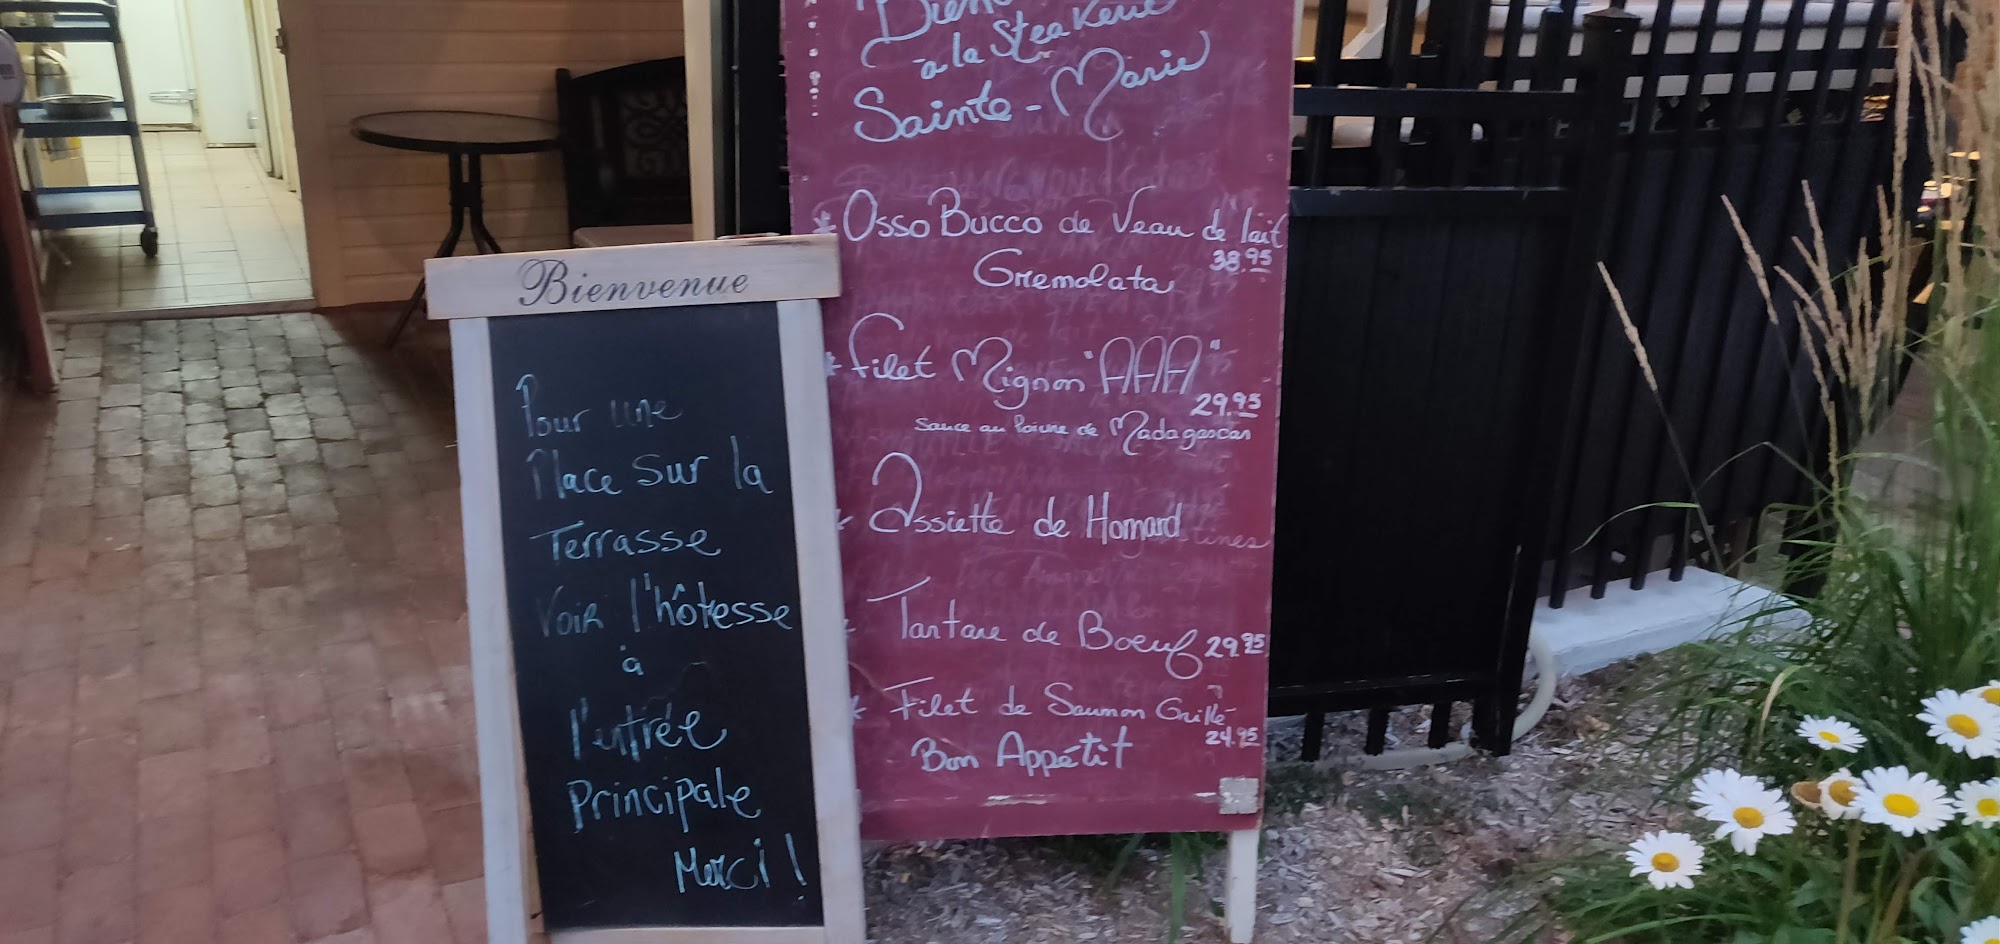 Bienvenue
Pour une
Place sur la
Terrasse
Voir l'hôtesse
à
l'entrée
principale
Merci !
à la Steakerie
Sainte-Marie
* Osso Bucco de Veau de lait
38.95
Gremolata
* Filet Mignon "AAA"
29.95
Sauce au Poivre de Madagascar
* Assiette de Homard
* Tartare de Boeuf 29.95
* Filet de Saumon Grillé
24.95
Bon Appétit